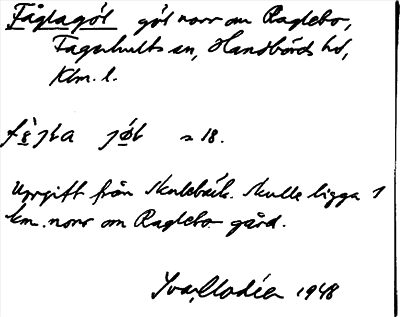 Fåglagöl göl norr om Raglebo,
Fagerhults sn, Handbörds hd,
Klm. l.
Uppgift från Skulebäck. Skulle ligga 1
km. norr om Raglebo gård.
Ivar Modéer 1948